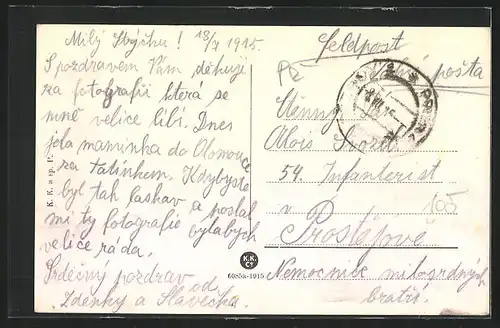 Milý Strýčku! 13/7 1915.
S pozdravem Vám děkuji
za fotografii která se
mně velice líbí. Dnes
jela maminka do Olomouce
za tatínkem. Kdybyste
byl tak laskav a poslal
mi ty fotografie bylabych
velice ráda.
Srdečný pozdrav
od
Zdenky a Slavečka.
Feldpost
Polní pošta
Ctěný
Alois
54. Infanterist
v
Prostějově
105
Nemocnice milosrdných
bratří.
K. K.
6085a-1915